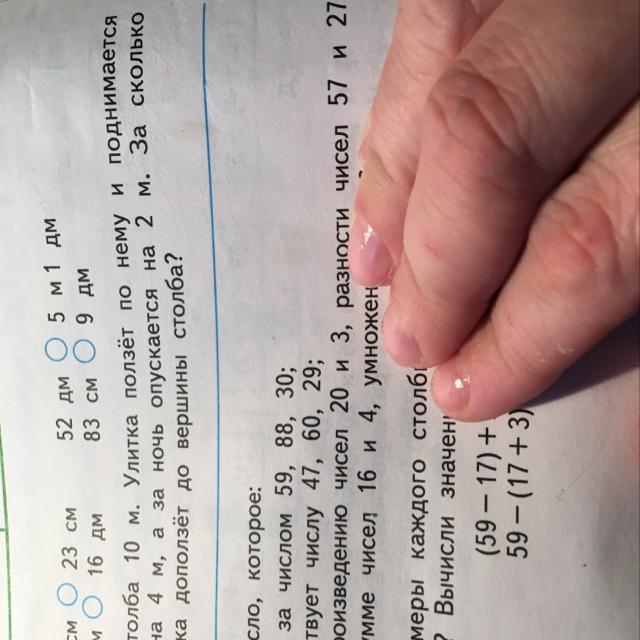 см ○ 23 см 52 дм ○ 5 м 1 дм
м ○ 16 дм 83 см ○ 9 дм
толба 10 м. Улитка ползёт по нему и поднимается
на 4 м, а за ночь опускается на 2 м. За сколько
ка доползёт до вершины столба?
сло, которое:
за числом 59, 88, 30;
твует числу 47, 60, 29;
роизведению чисел 20 и 3, разности чисел 57 и 27
умме чисел 16 и 4, умножен
меры каждого столб
? Вычисли значен
(59 – 17) +
59 – (17 + 3)